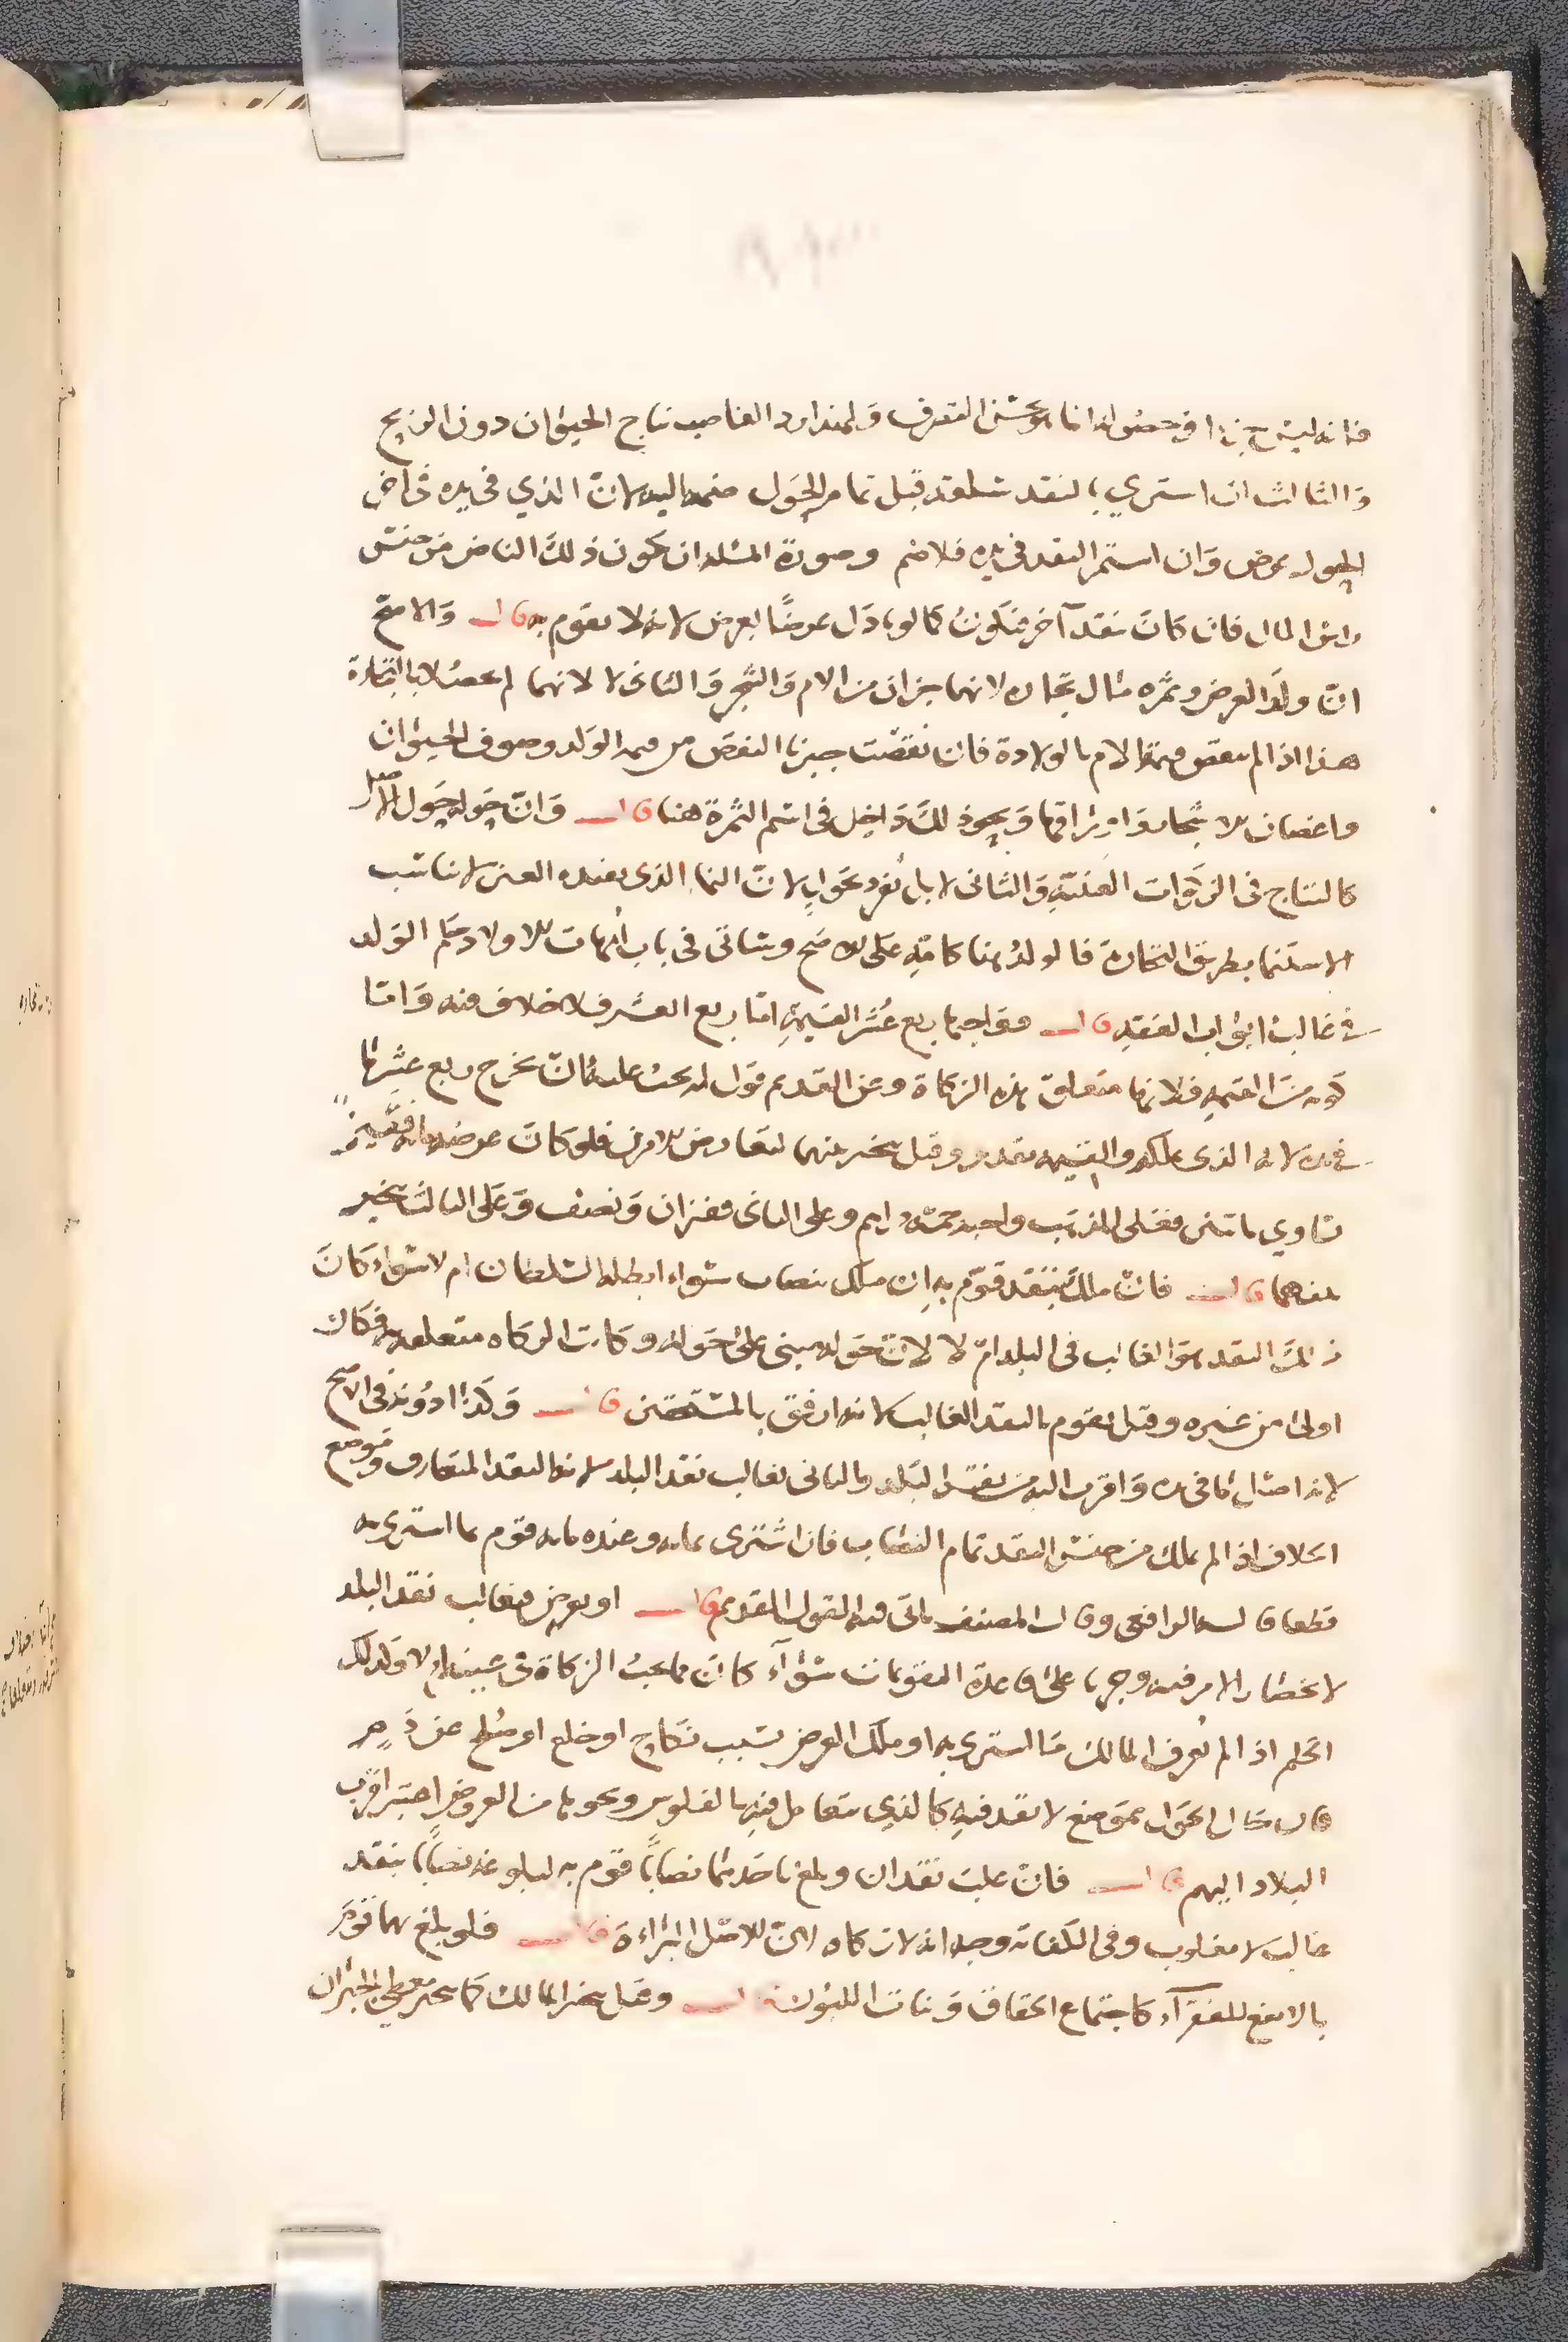 فانه ليس جزا في حصوله انما هو بحسن التصرف ولهذا رد الغاصب نتاج الحيوان دون الربح
والثالث ان اشتري بالنقد سلعة قبل تمام الحول ضمه اليه لان الذي في يده في اخر
الحول عرض وان استمر النقد في يده فلا ضم وصورة المسله ان يكون ذلك الناض من جنس
راس المال فان كان نقد آخر فيكون كما لو بادل عرضًا بعرض لانه لا يقوم به قال والاصح
انّ ولد العرض وثمره مال تجاره لانهما جزان من الام والشجر والثاني لا لانهما لم يحصلا بالتجارة
هذا اذا لم ينقص قيمة الام بالولادة فان نقصت جبرنا النقص من قيمة الولد وصوف الحيوان
واغصان الاشجار واوراقها ونحو ذلك داخل في اسم الثمرة هنا قال وانّ حوله حول الاصل
كالنتاج في الزكوات العينية والثاني لا بل نفرد بحول لانّ النما الذي يفيده العين لا يناسب
الاستنما بطريق التجارة فالولد هنا كامّه على الاصح وستاتي في باب أمهات الاولاد حكم الولد
في غالب ابواب الفقه قال وواجبها ربع عُشر القيمة امّا ربع العشر فلا خلاف فيه وامّا
كونه من القيمة فلانها متعلق هذه الزكاة وعن القديم قول انه يجب عليه أن يخرج ربع عشر ما
في يده لانه الذي يملكه والقيمه تقدير وقيل يتخير بينهما لتعارض الامرين فلو كان عرضه مائة قفيز
تساوي مائتين فعلى المذهب واجبه خمسة دراهم وعلى الثاني قفيزان ونصف وعلى الثالث يتخير
بينهما قال فان ملك بنقد قوّم به ان ملك بنصاب سواء ابطله السلطان ام لا سواء كان
ذلك النقد هو الغالب في البلد امّ لا لانّ حوله مبني على حوله وكانت الزكاه متعلقه به فكان
اولى من غيره وقيل يقوم بالنقد الغالب لانه ارفق بالمستحقين قال وكذا دونه في الاصح
لانه اصل ما في يده واقرب اليه من نقد البلد والثاني بغالب نقد البلد لانه النقد المتعارف وموضع
الخلاف اذا لم يملك من جنس النقد تمام النصاب فان اشترى بمائه وعنده مائه قوم بما اشترى به
قطعا قاله الرافعي وقال المصنف ياتي فيه القول القديم قال او بعرض فبغالب نقد البلد
لانحصار الامر فيه وجريا على قاعدة المقومات سواء كان مما يجب الزكاة في عينه ام لا وكذلك
الحكم اذا لم يعرف المالك ما اشترى به او ملك العرض بسبب نكاح او خلع او صلح عن دم
فان حال الحول بموضع لا نقد فيه كالذي يتعامل فيه بالفلوس ونحوها من العروض اعتبر اقرب
البلاد اليهم قال فان غلب نقدان وبلغ باحدهما نصابًا قوم به لبلوغه نصابًا بنقد
غالب لا مغلوب وفي الكفاية وجه انه لا زكاه لانّ الاصل البراءة قال فلو بلغ بهما قوّم
بالانفع للفقرآء كاجتماع الحقاق وبنات اللبون قال وقيل يتخير المالك كما يتخير معطي الجبران